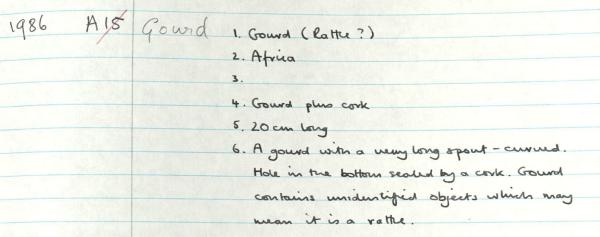 1986 A15 Gourd 1. Gourd (Rattle?)
2. Africa
3.
4. Gourd plus cork
5. 20cm long
6. A gourd with a very long spout - curved.
Hole in the bottom sealed by a cork. Gourd
contains unidentified objects which may
mean it is a rattle.